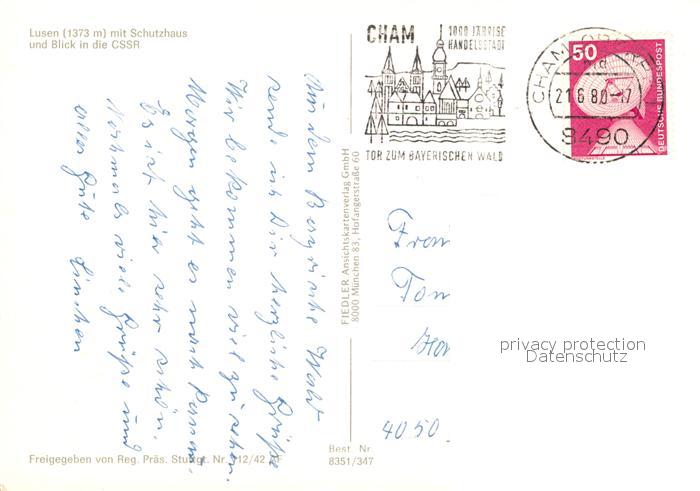 Lusen (1373 m) mit Schutzhaus
und Blick in die CSSR
CHAM
1000 JÄHRIGE
HANDELSSTADT
TOR ZUM BAYERISCHEN WALD
CHAM, OBERPF
21.6.80.-17
8490
50
DEUTSCHE BUNDESPOST
Aus dem Bayrische Wald
sende ich Dir herzliche Grüße
Wir bekommen viel zu sehen.
Morgen geht es nach Passau.
Es ist hier sehr schön.
Nochmals viele Grüße und
alles Gute
FIEDLER Ansichtskartenverlag GmbH
8000 München 83, Hofangerstraße 60
Frau
Ton
4050
privacy protection
Datenschutz
Freigegeben von Reg. Präs. Stuttgt. Nr. 12/42 AF
Best Nr.
8351/347